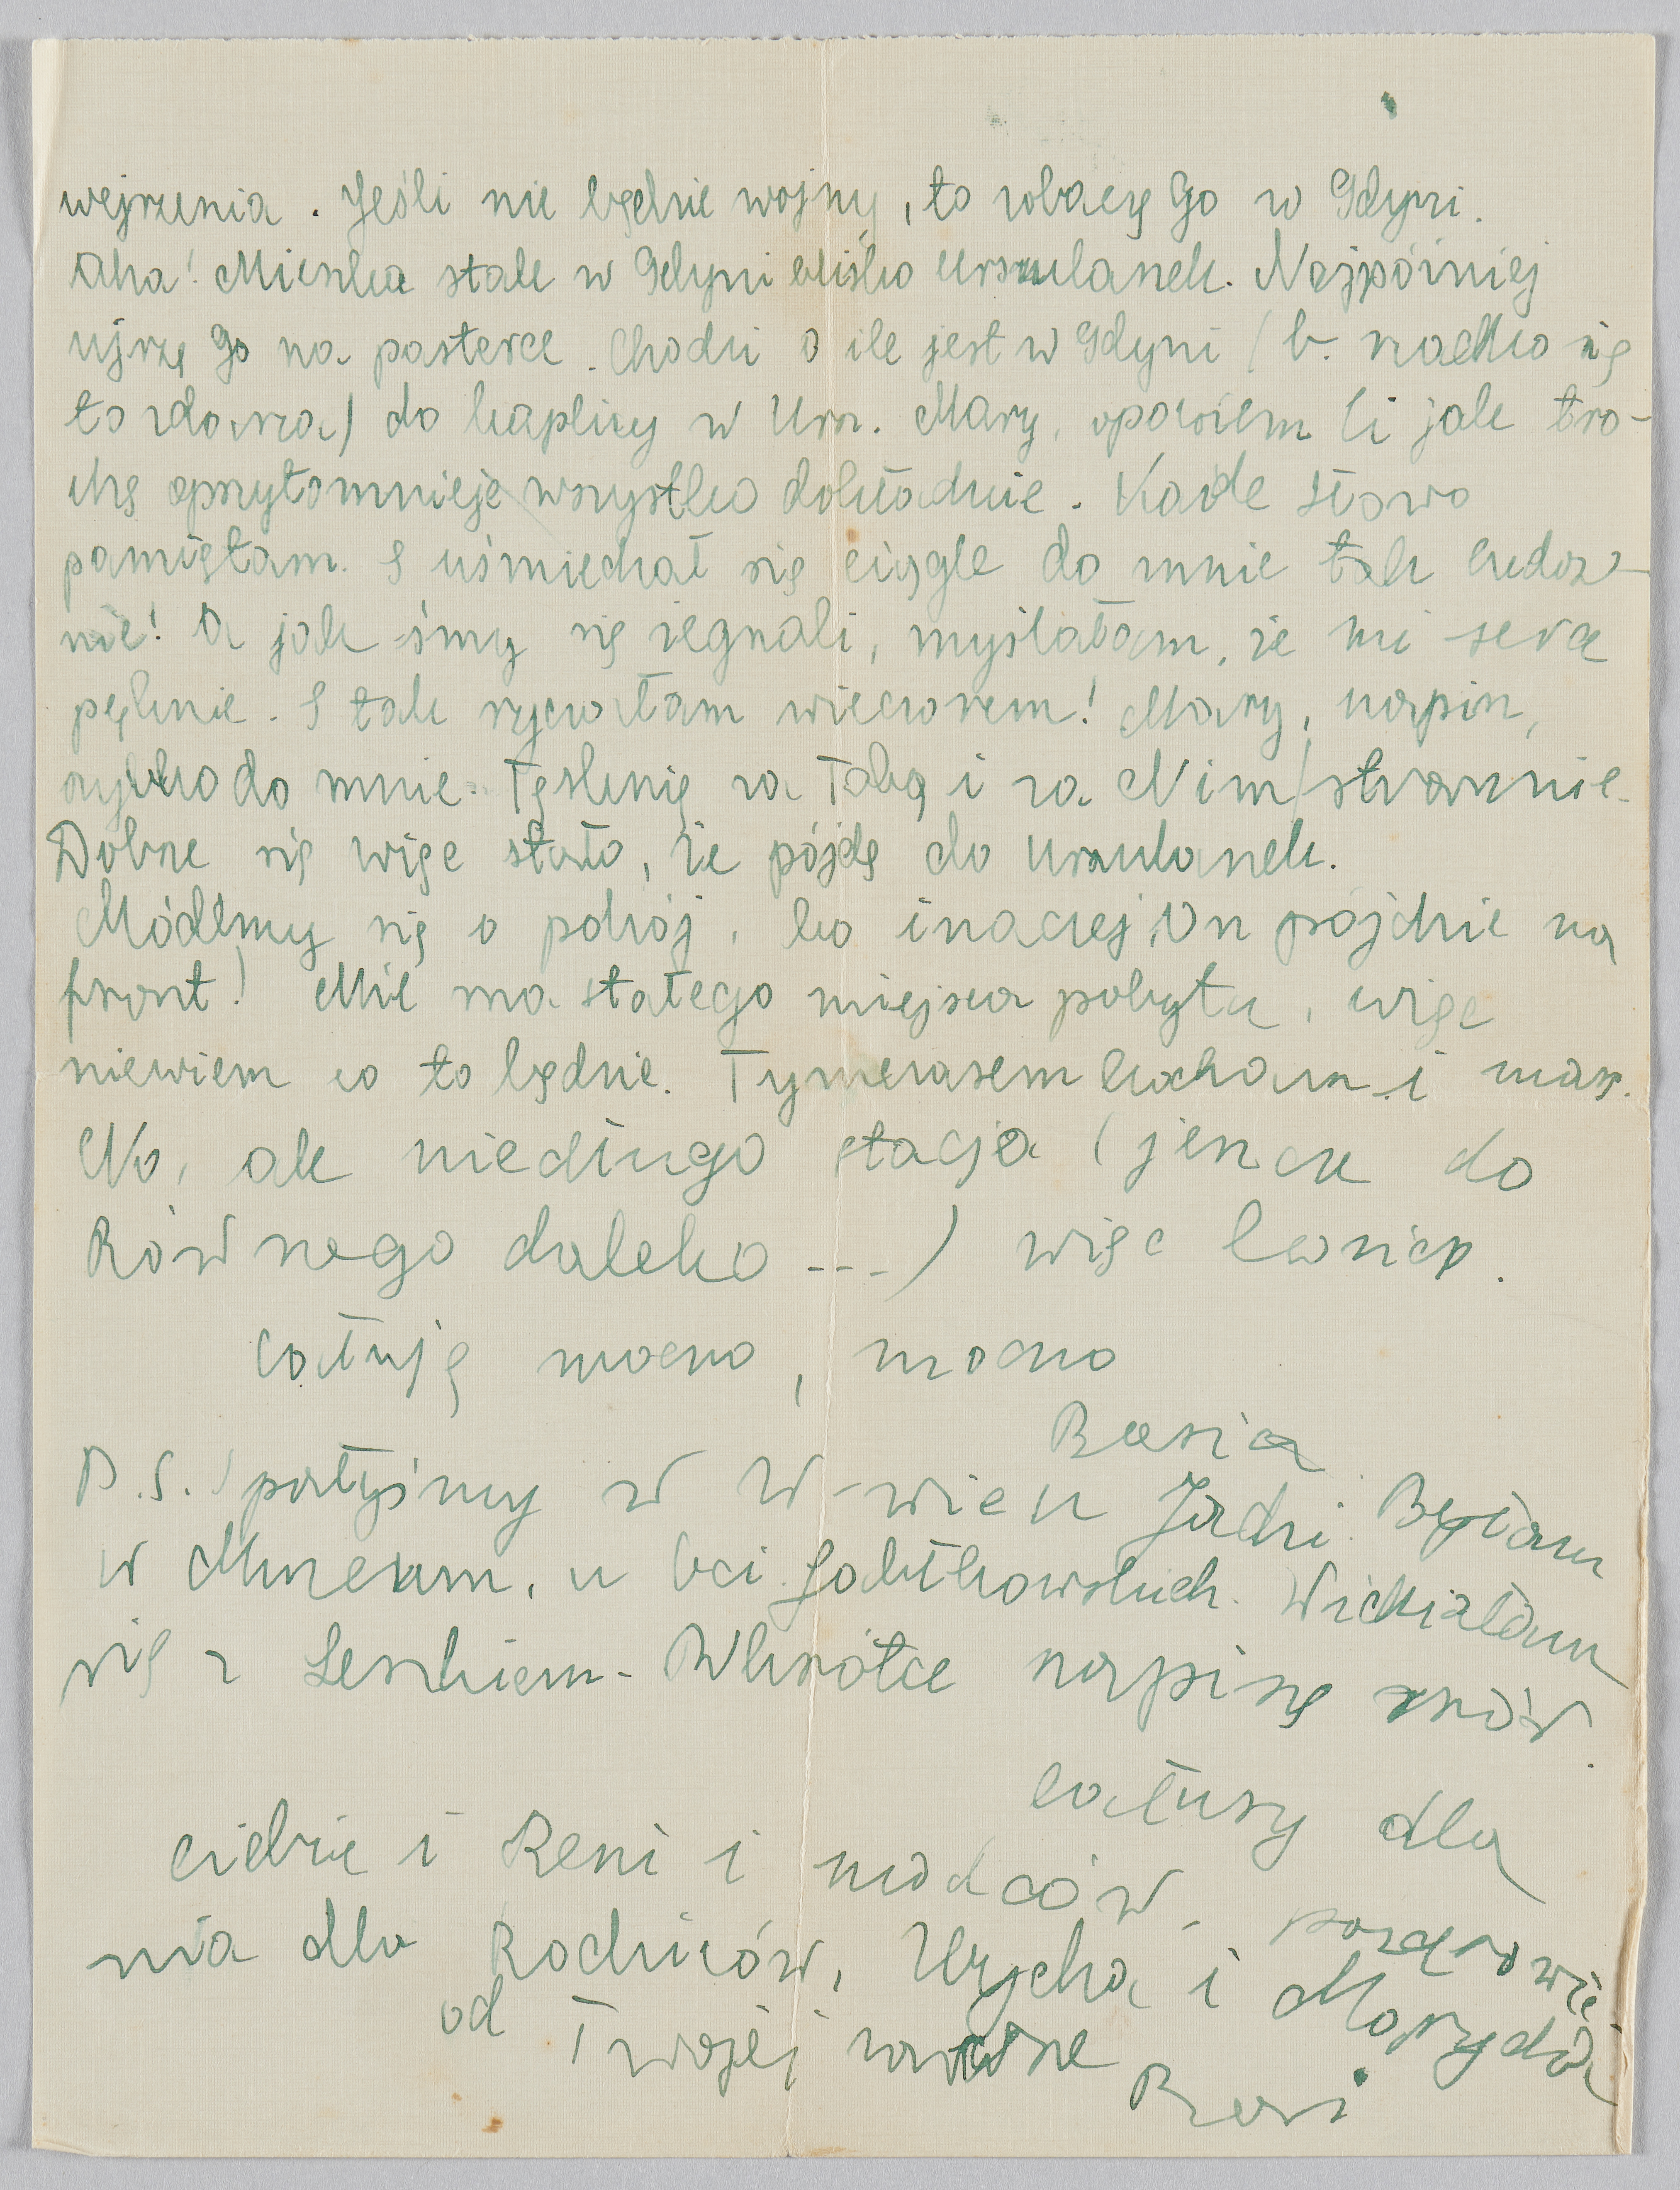 wejrzenia. Jeśli nie będzie wojny, to zobaczę Go w Gdyni.
Aha! Mieszka stale w Gdyni blisko Urszulanek. Najpóźniej
ujrzę Go na pasterce. Chodzi o ile jest w Gdyni (b. rzadko się
to zdarza) do kaplicy w Ursz. Mary, opowiem Ci jak tro-
chę oprzytomnieję wszystko dokładnie. Każde słowo
pamiętam. I uśmiechał się ciągle do mnie tak cudow-
nie! A jak śmy się żegnali, myślałam, że mi serce
pęknie. I tak ryczałam wieczorem! Mary, napisz,
szybko do mnie. Tęsknię za Tobą i za Nim strasznie.
Dobrze się więc stało, że pójdę do Urszulanek.
Módlmy się o pokój, bo inaczej On pójdzie na
front! Nie ma stałego miejsca pobytu, więc
niewiem co to będzie. Tymczasem kocham i marz.
No, ale niedługo stacja (jeszcze do
Równego daleko ---) więc kończę.
Całuję mocno, mocno
Basia
P.S. Spałyśmy w W-wie u Jadzi. Byłam
w Muzeum, u Widziałam
się z Leszkiem. Wkrótce napiszę znów.
całusy dla
Ciebie i Reni i pozdrowie
nia dla Rodziców, i
od Twojej zawsze
Basi